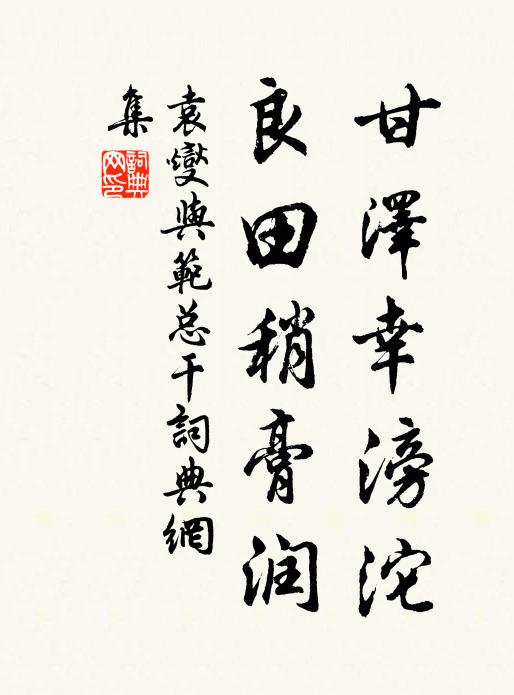 甘澤幸滂沱
良田稍膏润
袁燮與範总干詞典網
集
詞典网印